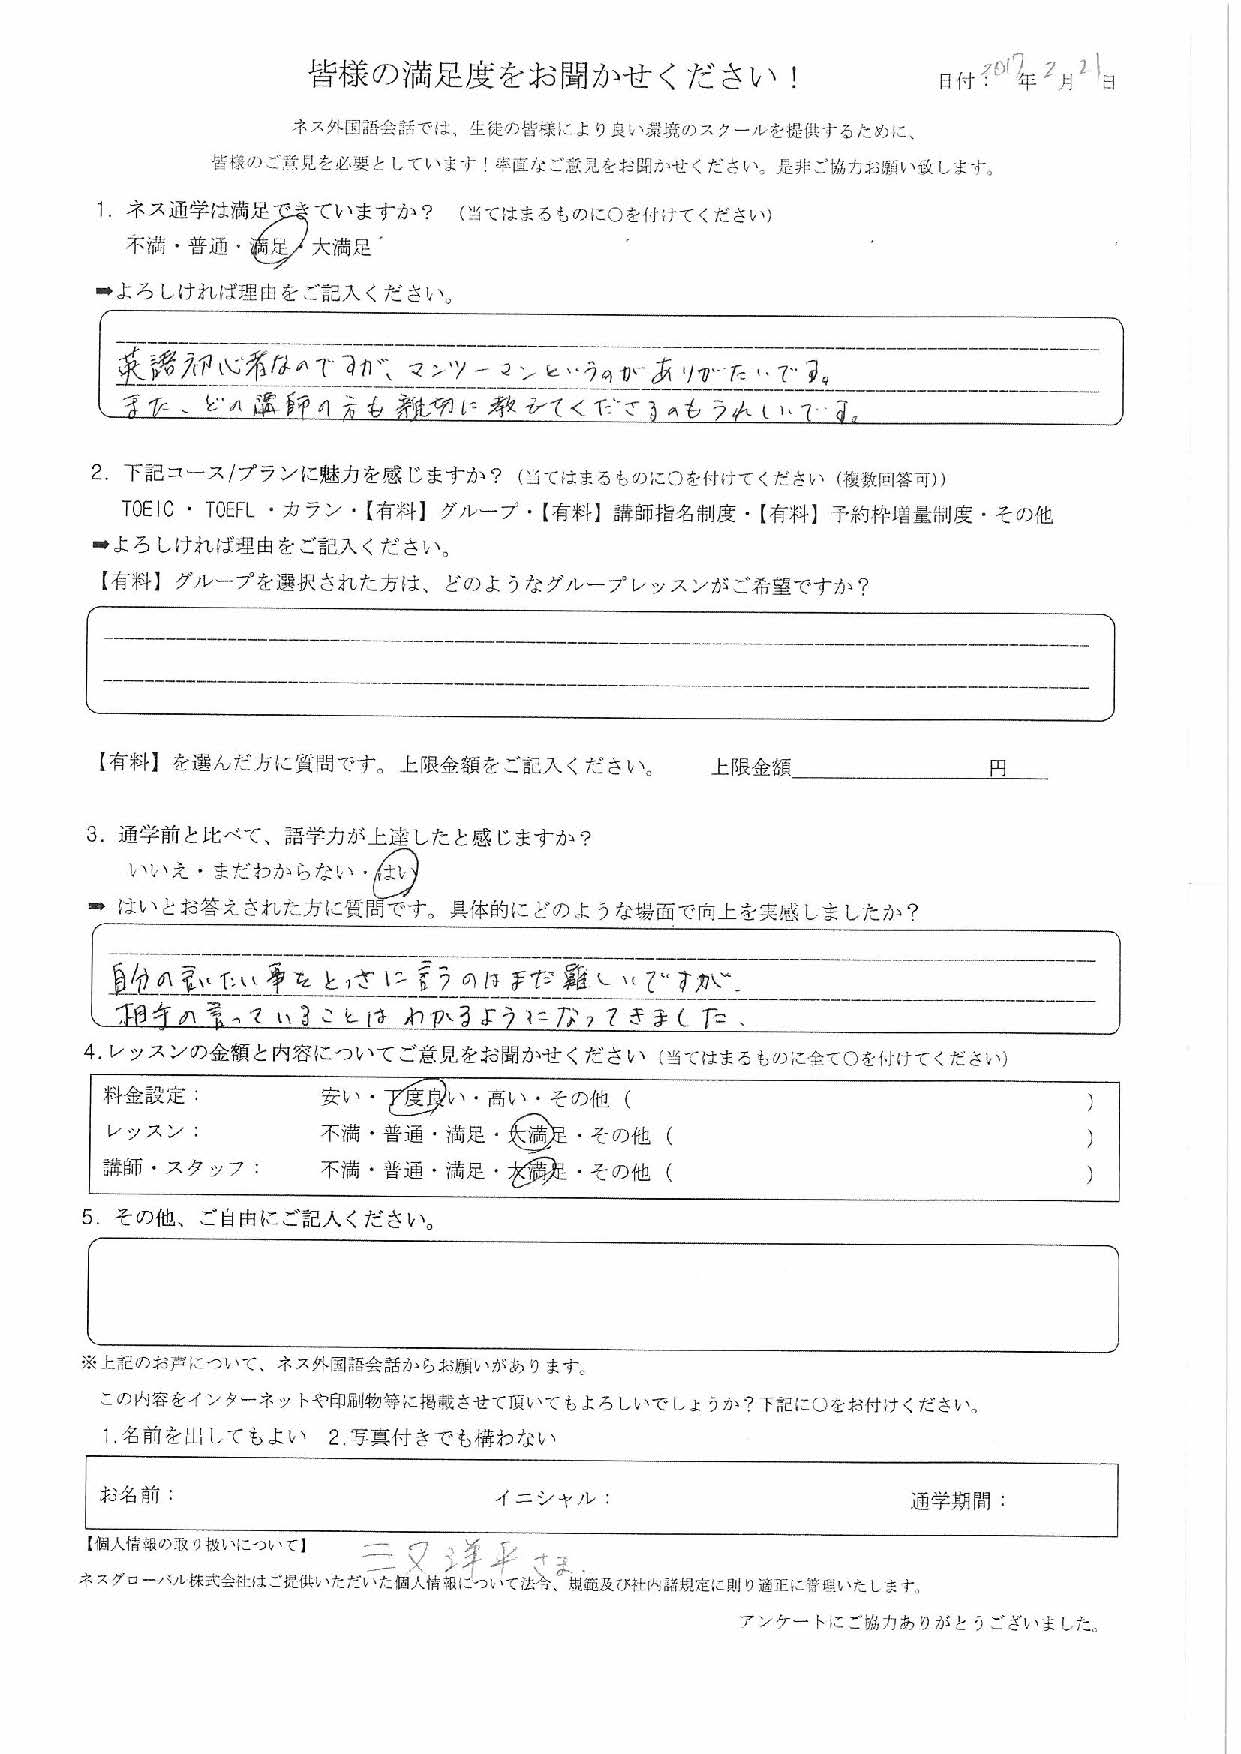 皆様の満足度をお聞かせください！
日付：2017年2月21日
ネス外国語会話では、生徒の皆様により良い環境のスクールを提供するために、
皆様のご意見を必要としています！率直なご意見をお聞かせください。是非ご協力お願い致します。
1. ネス通学は満足できていますか？（当てはまるものに○を付けてください）
不満・普通・満足・大満足
➡よろしければ理由をご記入ください。
英語初心者なのですが、マンツーマンというのがありがたいです。
また、どの講師の方も親切に教えてくださるのもうれしいです。
2. 下記コース/プランに魅力を感じますか？（当てはまるものに○を付けてください（複数回答可））
TOEIC・TOEFL・カラン・【有料】グループ・【有料】講師指名制度・【有料】予約枠増量制度・その他
➡よろしければ理由をご記入ください。
【有料】グループを選択された方は、どのようなグループレッスンがご希望ですか？
【有料】を選んだ方に質問です。上限金額をご記入ください。 上限金額 円
3. 通学前と比べて、語学力が上達したと感じますか？
いいえ・まだわからない・はい
➡ はいとお答えされた方に質問です。具体的にどのような場面で向上を実感しましたか？
自分の言いたい事をとっさに言うのはまだ難しいですが、
相手の言っていることはわかるようになってきました。
4.レッスンの金額と内容についてご意見をお聞かせください（当てはまるものに全て○を付けてください）
料金設定： 安い・丁度良い・高い・その他（ ）
レッスン： 不満・普通・満足・大満足・その他（ ）
講師・スタッフ： 不満・普通・満足・大満足・その他（ ）
5. その他、ご自由にご記入ください。
※上記のお声について、ネス外国語会話からお願いがあります。
この内容をインターネットや印刷物等に掲載させて頂いてもよろしいでしょうか？下記に○をお付けください。
1.名前を出してもよい 2.写真付きでも構わない
お名前： イニシャル： 通学期間：
【個人情報の取り扱いについて】
三又洋平さま
ネスグローバル株式会社はご提供いただいた個人情報について法令、規範及び社内諸規定に則り適正に管理いたします。
アンケートにご協力ありがとうございました。